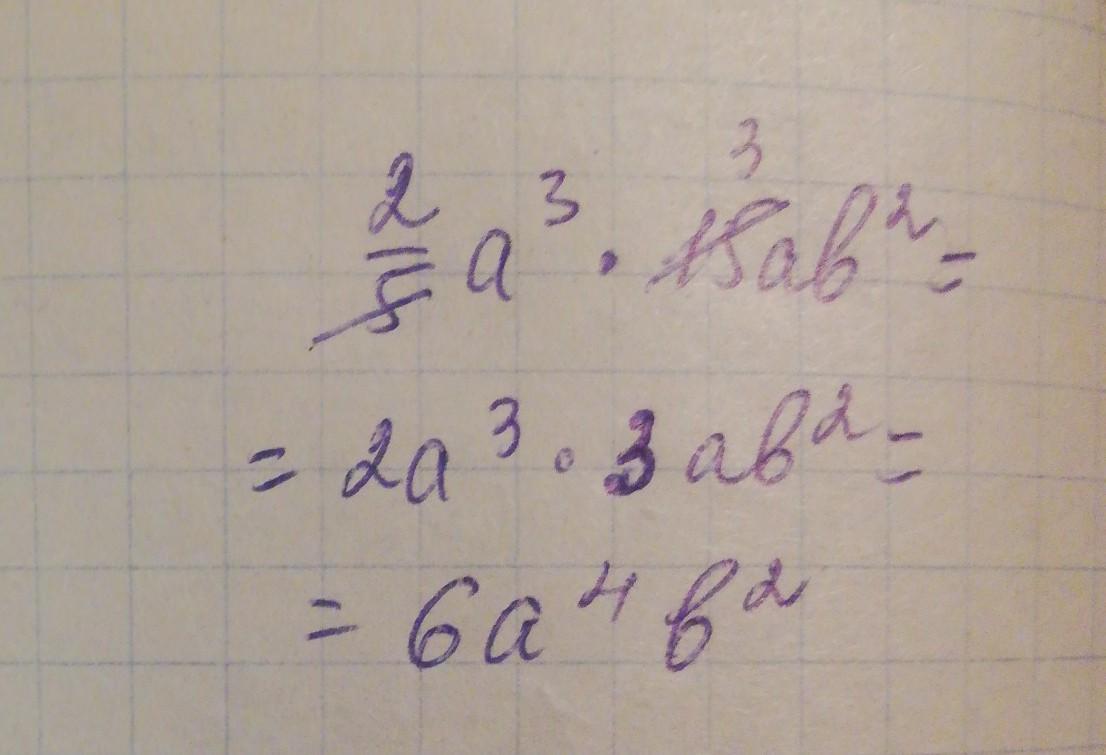 2/5 a³ · 15ab² = 3
= 2a³ · 3ab² =
= 6a⁴b²